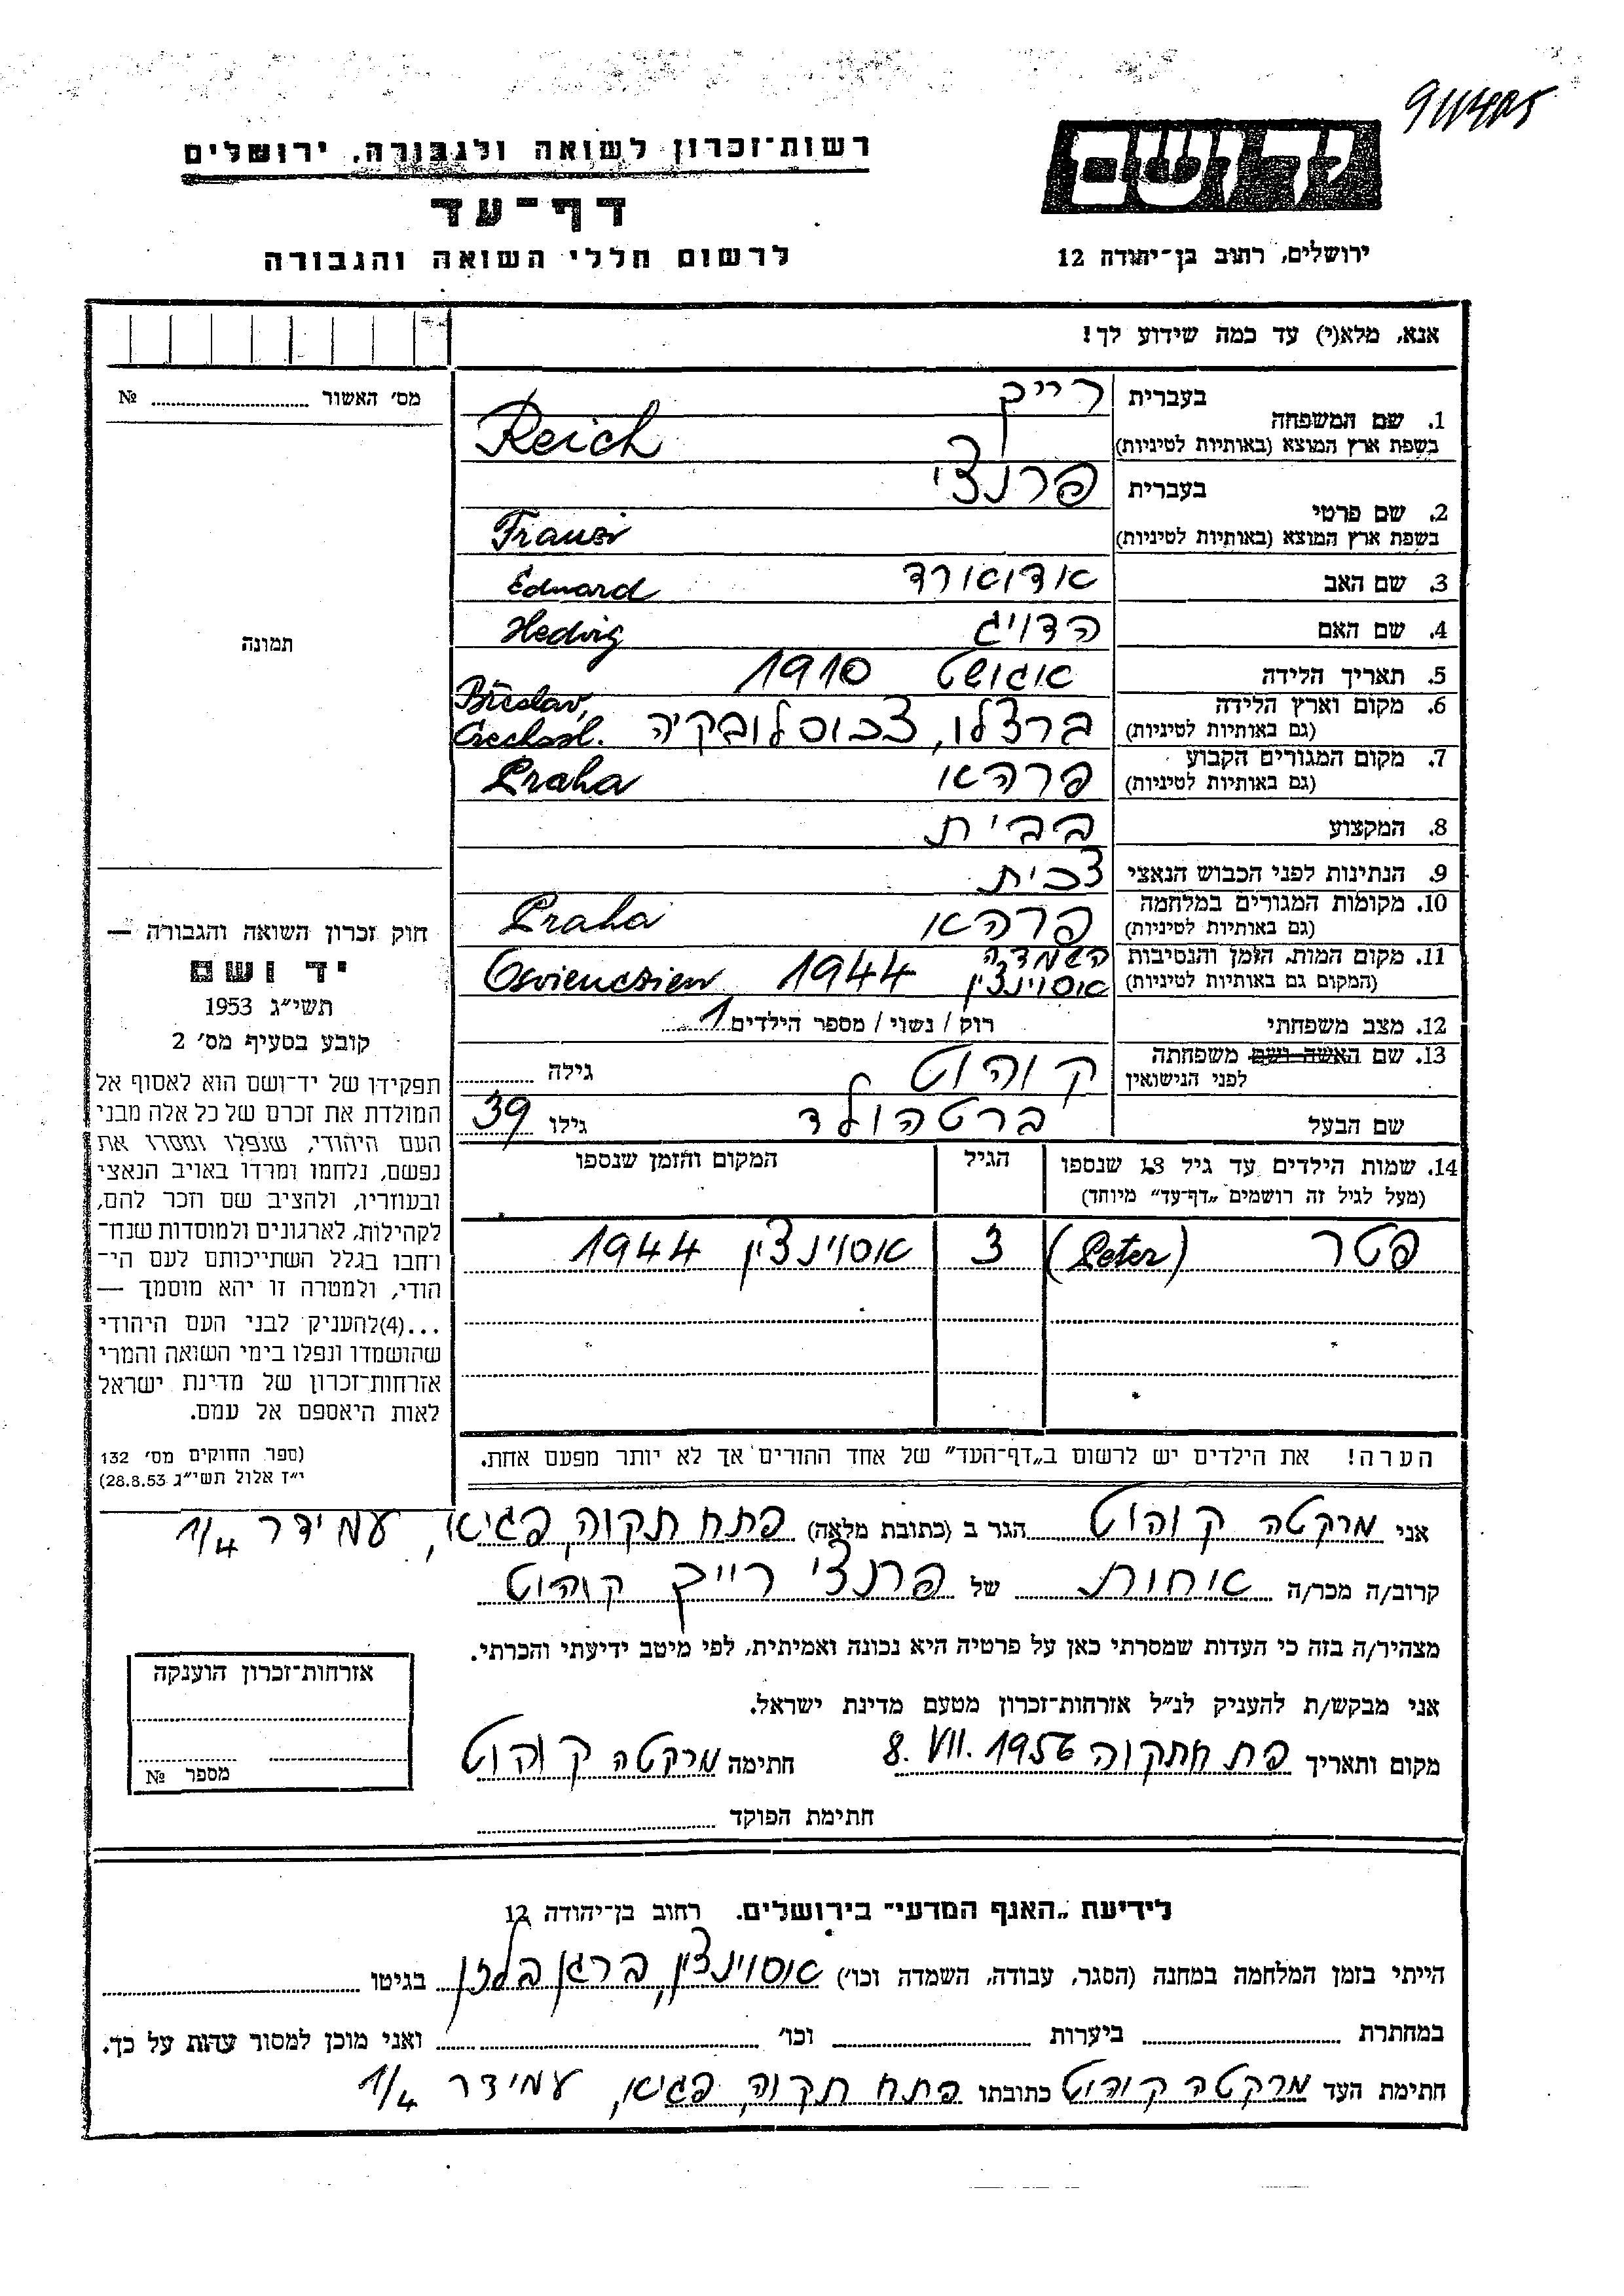 רשות־זכרון לשואה ולגבורה. ירושלים
דף־עד
לרשום חללי השואה והגבורה
יד ושם
ירושלים, רחוב בן־יהודה 12
אנא, מלא(י) עד כמה שידוע לך!
מס׳ האשור № ....................
תמונה
1. שם המשפחה
בעברית רייך
בשפת ארץ המוצא (באותיות לטיניות) Reich
2. שם פרטי
בעברית פרנצי
בשפת ארץ המוצא (באותיות לטיניות) Franzi
3. שם האב אדוארד Eduard
4. שם האם הדויג Hedvig
5. תאריך הלידה אוגוסט 1910
6. מקום וארץ הלידה ברצלו, צכוסלובקיה Břeslav,
(גם באותיות לטיניות) Czechosl.
7. מקום המגורים הקבוע פרהא Praha
(גם באותיות לטיניות)
8. המקצוע בבית
9. הנתינות לפני הכבוש הנאצי צכית
10. מקומות המגורים במלחמה פרהא Praha
(גם באותיות לטיניות)
11. מקום המות, הזמן והנסיבות השמדה
(המקום גם באותיות לטיניות) אוסוינצין 1944 Osvienczien
12. מצב משפחתי רוק / נשוי / מספר הילדים 1
13. שם האשה ושם משפחתה
לפני הנישואין קוהוט גילה ............
שם הבעל ברטהולד גילו 39
14. שמות הילדים עד גיל 18 שנספו
(מעל לגיל זה רושמים „דף־עד” מיוחד)
הגיל
המקום והזמן שנספו
פטר (Peter) 3 אוסוינצין 1944
הערה! את הילדים יש לרשום ב„דף־העד” של אחד ההורים אך לא יותר מפעם אחת.
חוק זכרון השואה והגבורה —
יד ושם
תשי״ג 1953
קובע בסעיף מס׳ 2
תפקידו של יד־ושם הוא לאסוף אל
המולדת את זכרם של כל אלה מבני
העם היהודי, שנפלו ומסרו את
נפשם, נלחמו ומרדו באויב הנאצי
ובעוזריו, ולהציב שם וזכר להם,
לקהילות, לארגונים ולמוסדות שנח־
רחבו בגלל השתייכותם לעם הי־
הודי, ולמטרה זו יהא מוסמך —
...(4)להעניק לבני העם היהודי
שהושמדו ונפלו בימי השואה והמרי
אזרחות־זכרון של מדינת ישראל
לאות היאספם אל עמם.
(ספר החוקים מס׳ 132
י״ז אלול תשי״ג 28.8.53)
אני מרקטה קוהוט הגר ב (כתובת מלאה) פתח תקוה, פגיא, עמידר 1/4
קרוב/ה מכר/ה אחות של פרנצי רייך קוהוט
מצהיר/ה בזה כי העדות שמסרתי כאן על פרטיה היא נכונה ואמיתית, לפי מיטב ידיעתי והכרתי.
אני מבקש/ת להעניק לנ״ל אזרחות־זכרון מטעם מדינת ישראל.
מקום ותאריך פתח תקוה 8. VII. 1956 חתימה מרקטה קוהוט
חתימת הפוקד
אזרחות־זכרון הוענקה
מספר №
לידיעת „האגף המדעי” בירושלים. רחוב בן־יהודה 12
הייתי בזמן המלחמה במחנה (הסגר, עבודה, השמדה וכו׳) אוסוינצין, ברגן בלזן בגיטו
במחתרת ביערות וכו׳ ואני מוכן למסור עדות על כך.
חתימת העד מרקטה קוהוט כתובתו פתח תקוה, פגיא, עמידר 1/4